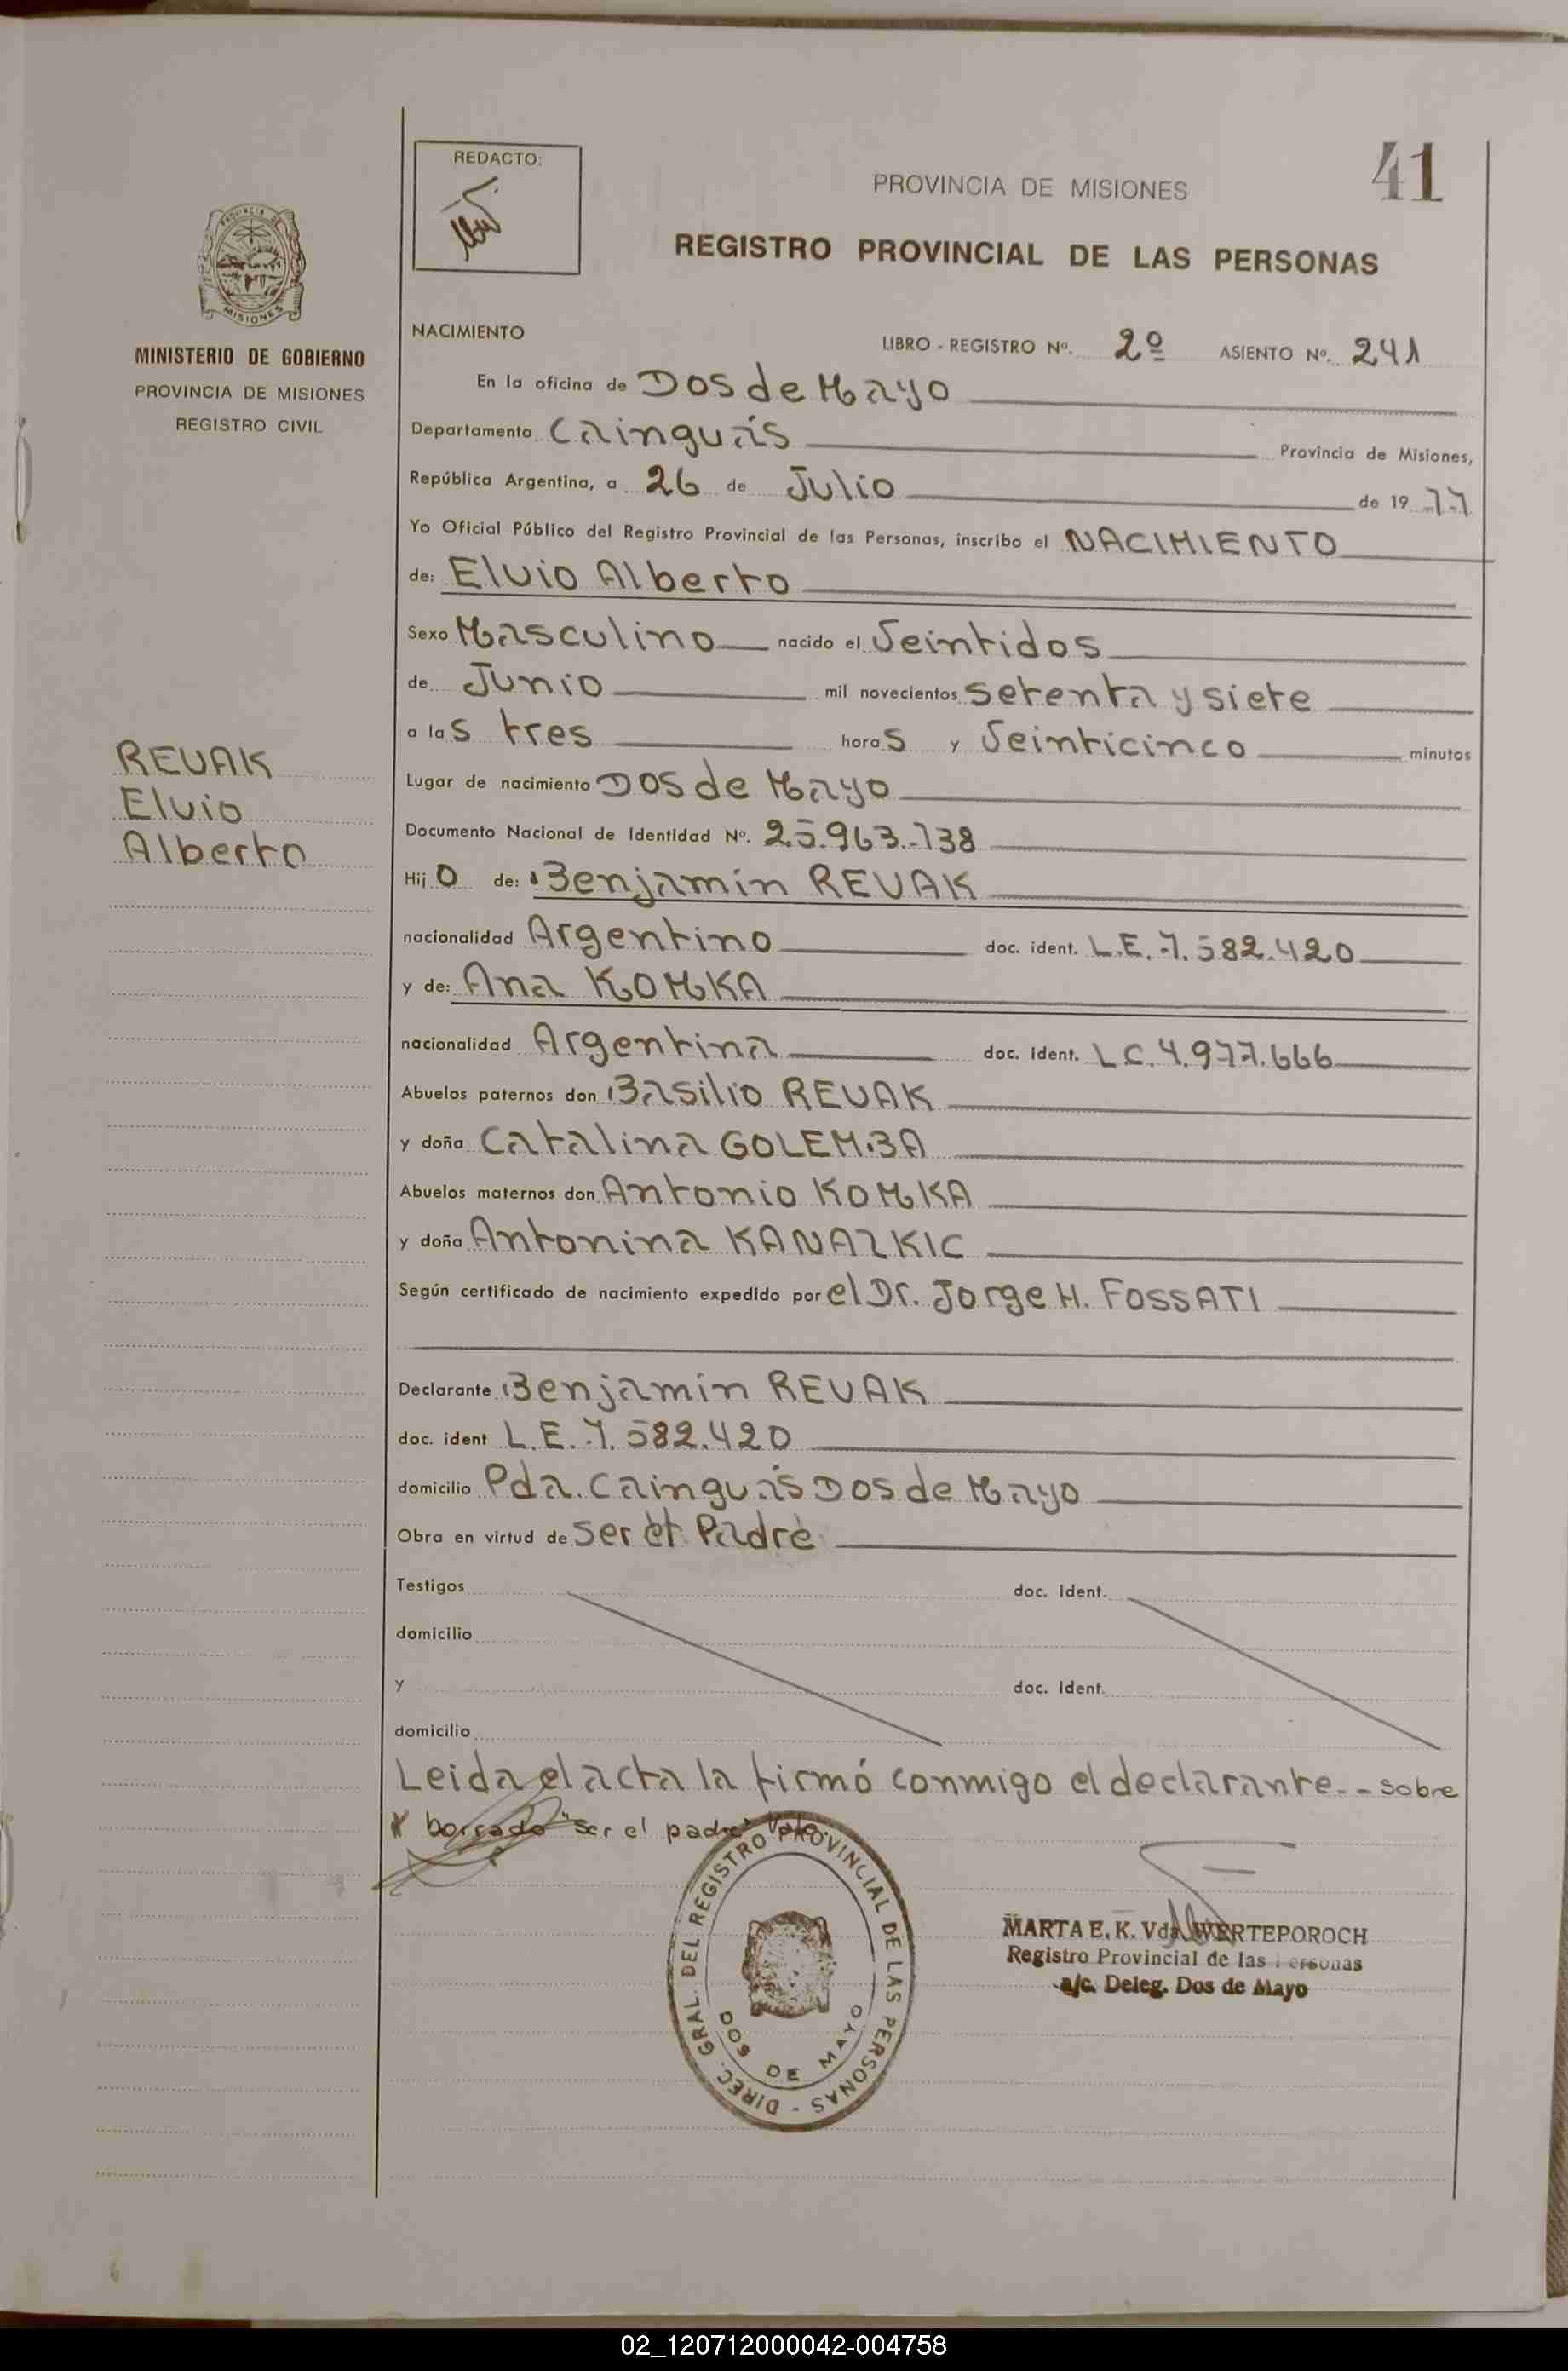 REDACTO:
PROVINCIA DE MISIONES
41
REGISTRO PROVINCIAL DE LAS PERSONAS
PROVINCIA DE
MISIONES
MINISTERIO DE GOBIERNO
PROVINCIA DE MISIONES
REGISTRO CIVIL
NACIMIENTO LIBRO - REGISTRO Nº. 2º ASIENTO Nº. 241
En la oficina de Dos de Mayo
Departamento Cainguás Provincia de Misiones,
República Argentina, a 26 de Julio de 19 77
Yo Oficial Público del Registro Provincial de las Personas, inscribo el NACIMIENTO
de: Elvio Alberto
Sexo Masculino nacido el Veintidos
de Junio mil novecientos setenta y siete
a las tres horas y Veinticinco minutos
REVAK
Elvio
Alberto
Lugar de nacimiento Dos de Mayo
Documento Nacional de Identidad Nº. 25.963.738
Hijo de: Benjamín REVAK
nacionalidad Argentino doc. ident. L.E. 7.582.420
y de: Ana KOMKA
nacionalidad Argentina doc. ident. L.C. 4.977.666
Abuelos paternos don Basilio REVAK
y doña Catalina GOLEMBA
Abuelos maternos don Antonio KOMKA
y doña Antonina KANAZKIC
Según certificado de nacimiento expedido por el Dr. Jorge H. FOSSATI
Declarante Benjamín REVAK
doc. ident L.E. 7.582.420
domicilio Pda. Cainguás Dos de Mayo
Obra en virtud de ser el Padre
Testigos doc. Ident.
domicilio
y doc. Ident.
domicilio
Leida el acta la firmó conmigo el declarante.- - sobre
borrado "ser el padre" Vale.
DIREC. GRAL. DEL REGISTRO PROVINCIAL DE LAS PERSONAS -
DOS DE MAYO
MARTA E. K. Vda. WERTEPOROCH
Registro Provincial de las Personas
a/c. Deleg. Dos de Mayo
02_120712000042-004758